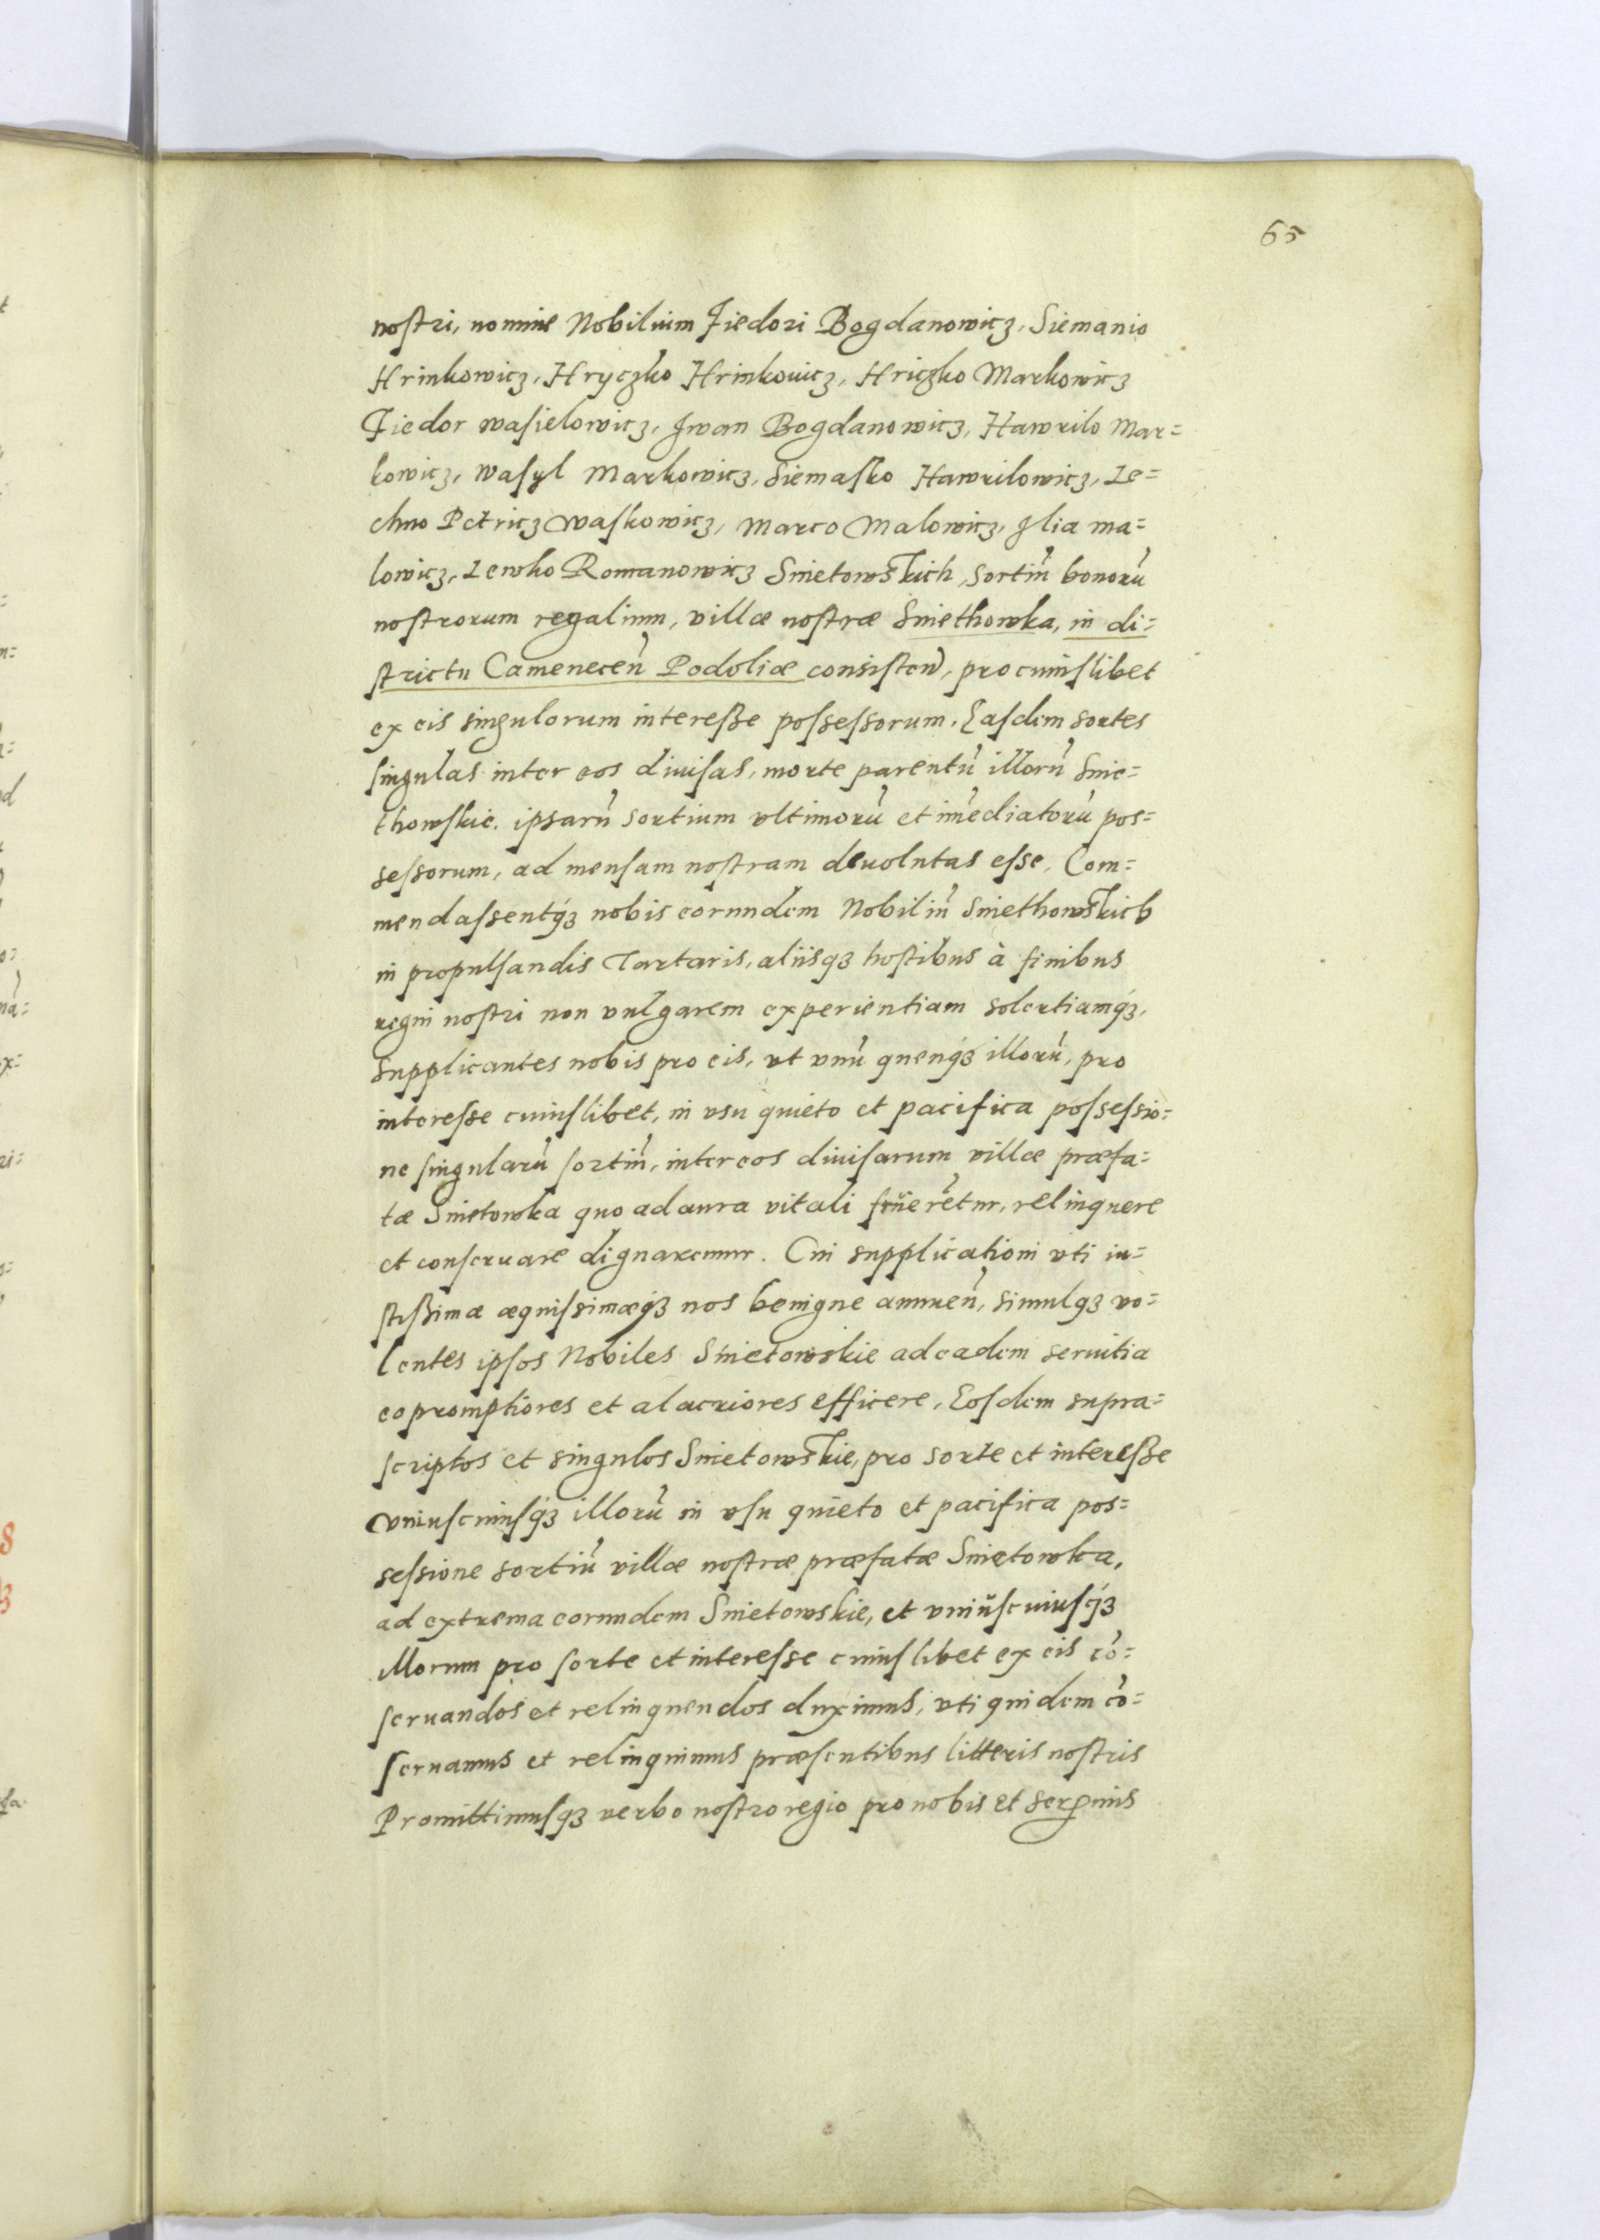 65
nostri, nomine Nobilium Fiedori Bogdanowicz, Siemanio
Hrinkowicz, Hryczko Hrinkouicz, Hriczko Markowicz
Fiedor wasielowicz, Jwan Bogdanowicz, Hawrilo Mar=
kowicz, wasyl Markowicz, Siemasko Hawrilowicz, Le=
chno Petricz Waskowicz, Marco Malowicz, Jlia ma=
lowicz, Lewko Romanowicz Snietowskich, sortiũ bonorũ
nostrorum regalium, villæ nostræ Sniethowka, in di=
strictu Cameneceñ Podoliæ consisteñ, pro cuiuslibet
ex eis singulorum interesse possessorum. Easdem sortes
singulas inter eos diuisas, morte parentũ illorũ Snie=
thowskie. ipsarũ sortium vltimorũ et im̃ediatorũ pos=
sessorum, ad mensam nostram deuolutas esse. Com=
mendassentq́ꝫ nobis eorundem Nobiliũ Sniethowskich
in propulsandis Tartaris, aliisqꝫ hostibus à finibus
regni nostri non vulgarem experientiam solertiamq́ꝫ,
supplicantes nobis pro eis, vt vnũ quenq́ꝫ illorũ, pro
interesse cuiuslibet, in vsu quieto et pacifica possessio=
ne singularũ sortiũ, inter eos diuisarum villæ præfa=
tæ Snietowka quo ad aura vitali frueret̃ur, relinquere
et conseruare dignaremur. Cui supplicationi vti iu=
stissimæ æquissimæq́ꝫ nos benigne annueñ, simulqꝫ vo=
lentes ipsos Nobiles Snietowskie ad eadem seruitia
eo promptiores et alacriores efficere, Eosdem supra=
scriptos et singulos Snietowskie, pro sorte et interesse
vniuscuiusq́ꝫ illorũ in vsu quieto et pacifica pos=
sessione sortiũ villæ nostræ præfatæ Snietowka,
ad extrema eorundem Snietowskie, et vniuscuiusq́ꝫ
illorum pro sorte et interesse cuiuslibet ex eis cõ=
seruandos et relinquendos duximus, vti quidem cõ=
seruamus et relinquimus præsentibus litteris nostris
Promittimusq́ꝫ verbo nostro regio pro nobis et serꝑmis